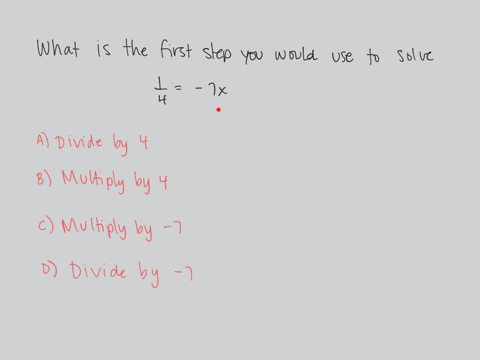 What is the first step you would use to solve
1/4 = -7x
A) Divide by 4
B) Multiply by 4
C) Multiply by -7
D) Divide by -7